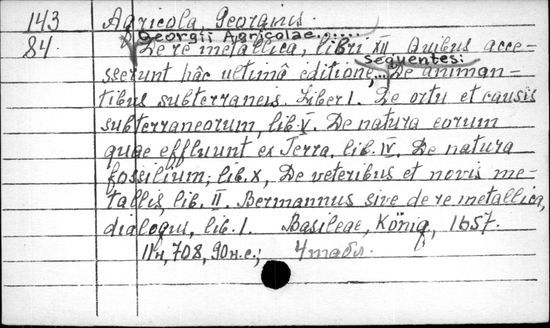 143 Agricola, Georgius.
Georgii Agricolae......
84. De re metallica, libri XII Quibus acce-
sequentes:
sserunt hâc ultimâ editione,... De animan-
tibus subterraneis. Liber I. De ortu et causis
subterraneorum, lib. V. De natura eorum
quae effluunt ex Terra, lib. IV. De natura
fossilium, lib. X, De veteribus et novis me-
tallis, lib. II. Bermannus sive de re metallica,
dialogus, lib. I. Basileae, König, 1657.
11н, 708, 90н.с.; 4табл.